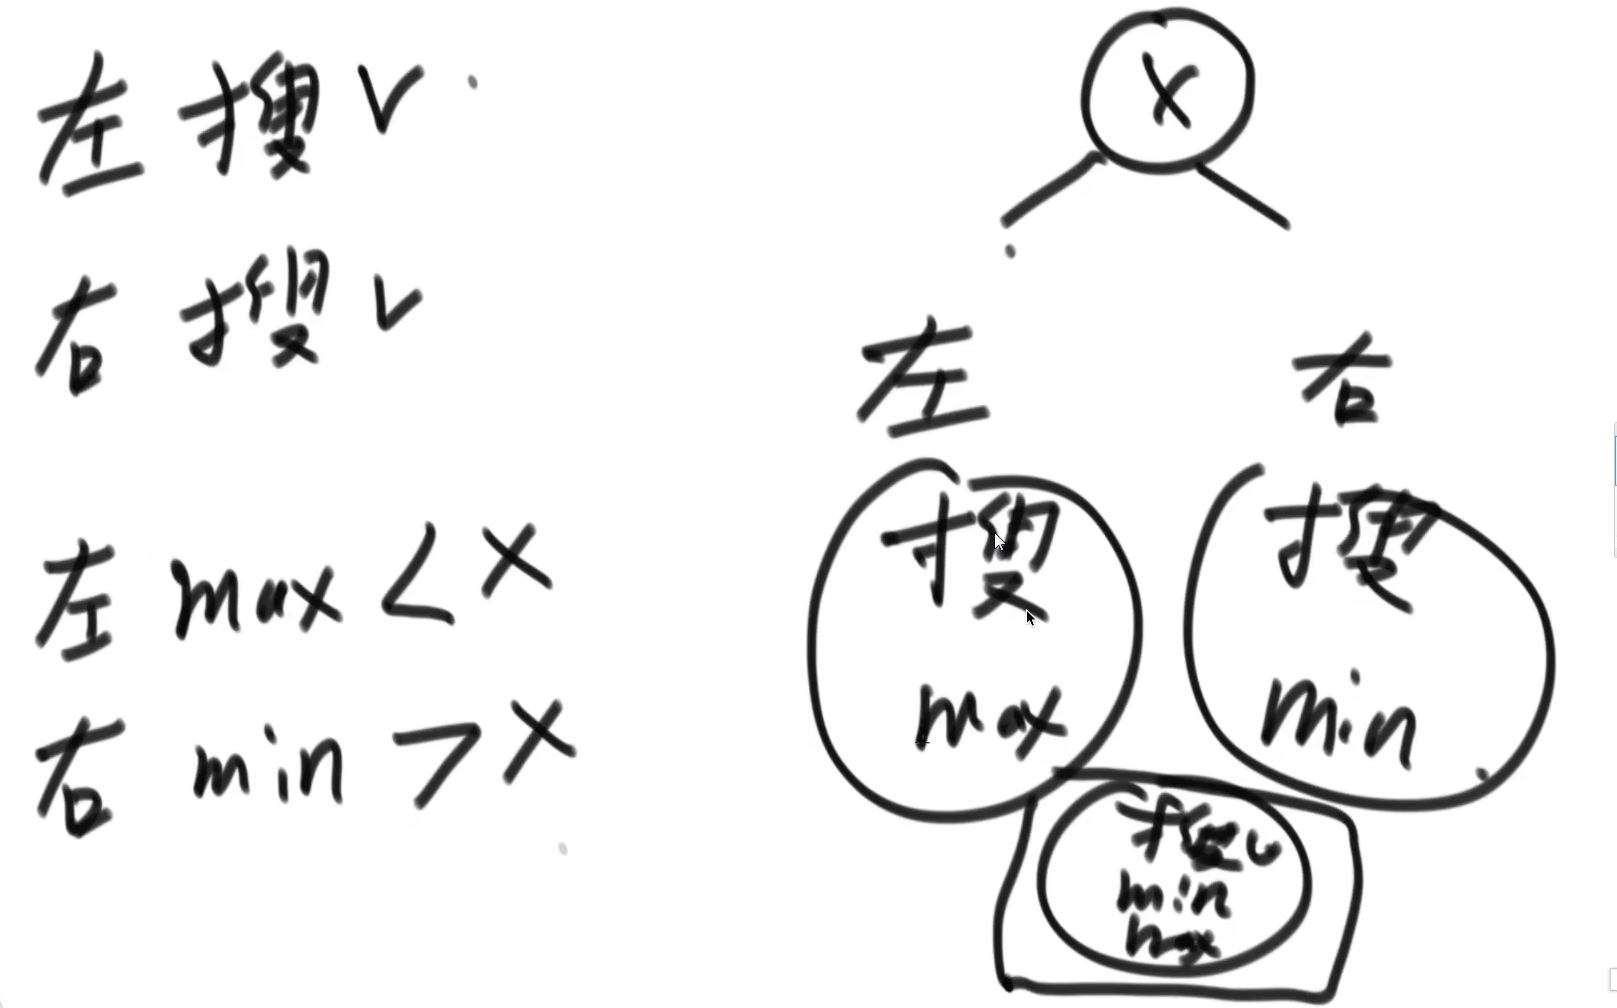 左 搜 √
右 搜 √
左 max < X
右 min > X
X
左 右
搜 搜
max min
搜 √
min
max